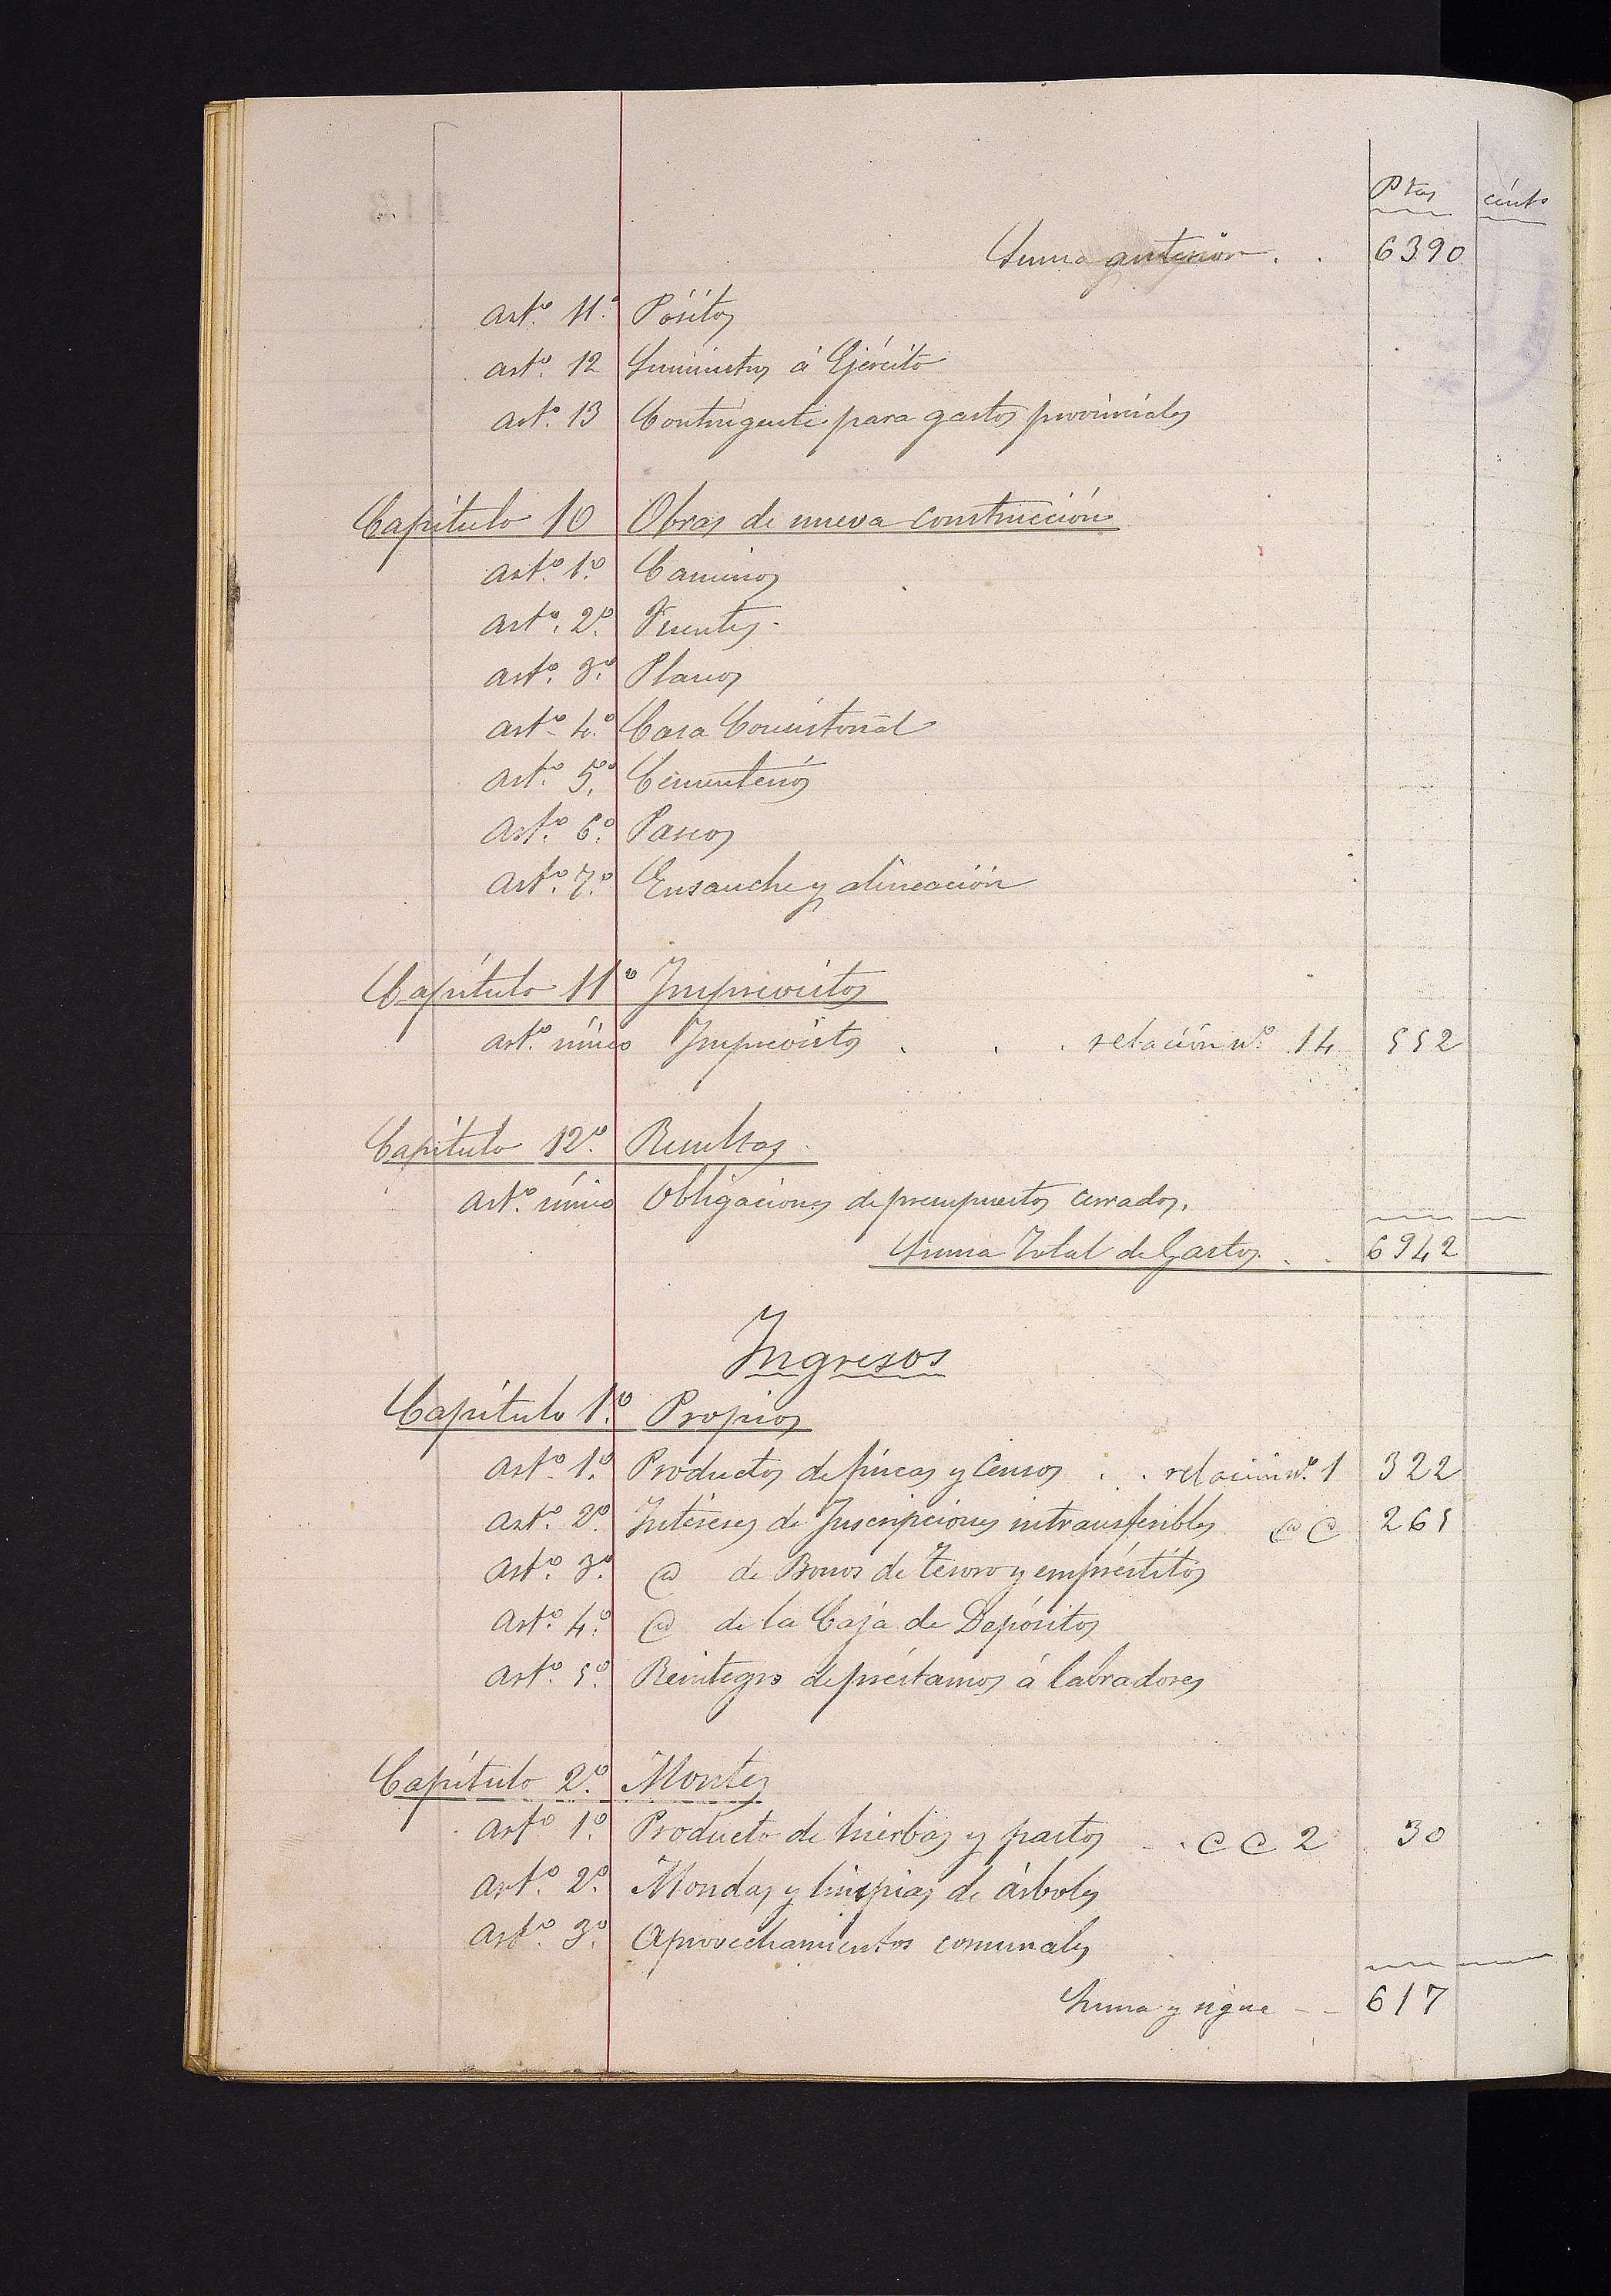 Ptas cénts
Suma anterior . . 6390
artº. 11.º Pósitos
artº. 12 Suministros á Ejército
artº. 13 Contingente para gastos provinciales
Capítulo 10 Obras de nueva construcción
artº. 1.º Caminos
artº. 2.º Fuentes.
artº. 3.º Planos
artº. 4.º Casa Consistorial
artº. 5.º Cementerios
artº. 6.º Paseos
artº. 7.º Ensanche y alineación
Capítulo 11º Imprevistos
artº. único Imprevistos . . . relación nº. 14 552
Capítulo 12.º Resultas
artº. único Obligaciones de presupuestos cerrados.
Suma Total de Gastos . . 6942
Ingresos
Capítulo 1.º Propios
artº. 1.º Productos de fincas y censos . . relación nº. 1 322
artº. 2.º Intereses de Inscripciones intransferibles @ @ 265
artº. 3.º @ de Bonos de Tesoro y empréstitos
artº. 4.º @ de la Caja de Depósitos
artº. 5.º Reintegro de préstamos á labradores
Capítulo 2.º Montes
artº. 1.º Producto de hierbas y pastos - . @ @ 2 30
artº. 2.º Mondas y limpias de árboles
artº. 3.º Aprovechamientos comunales
Suma y sigue - - 617